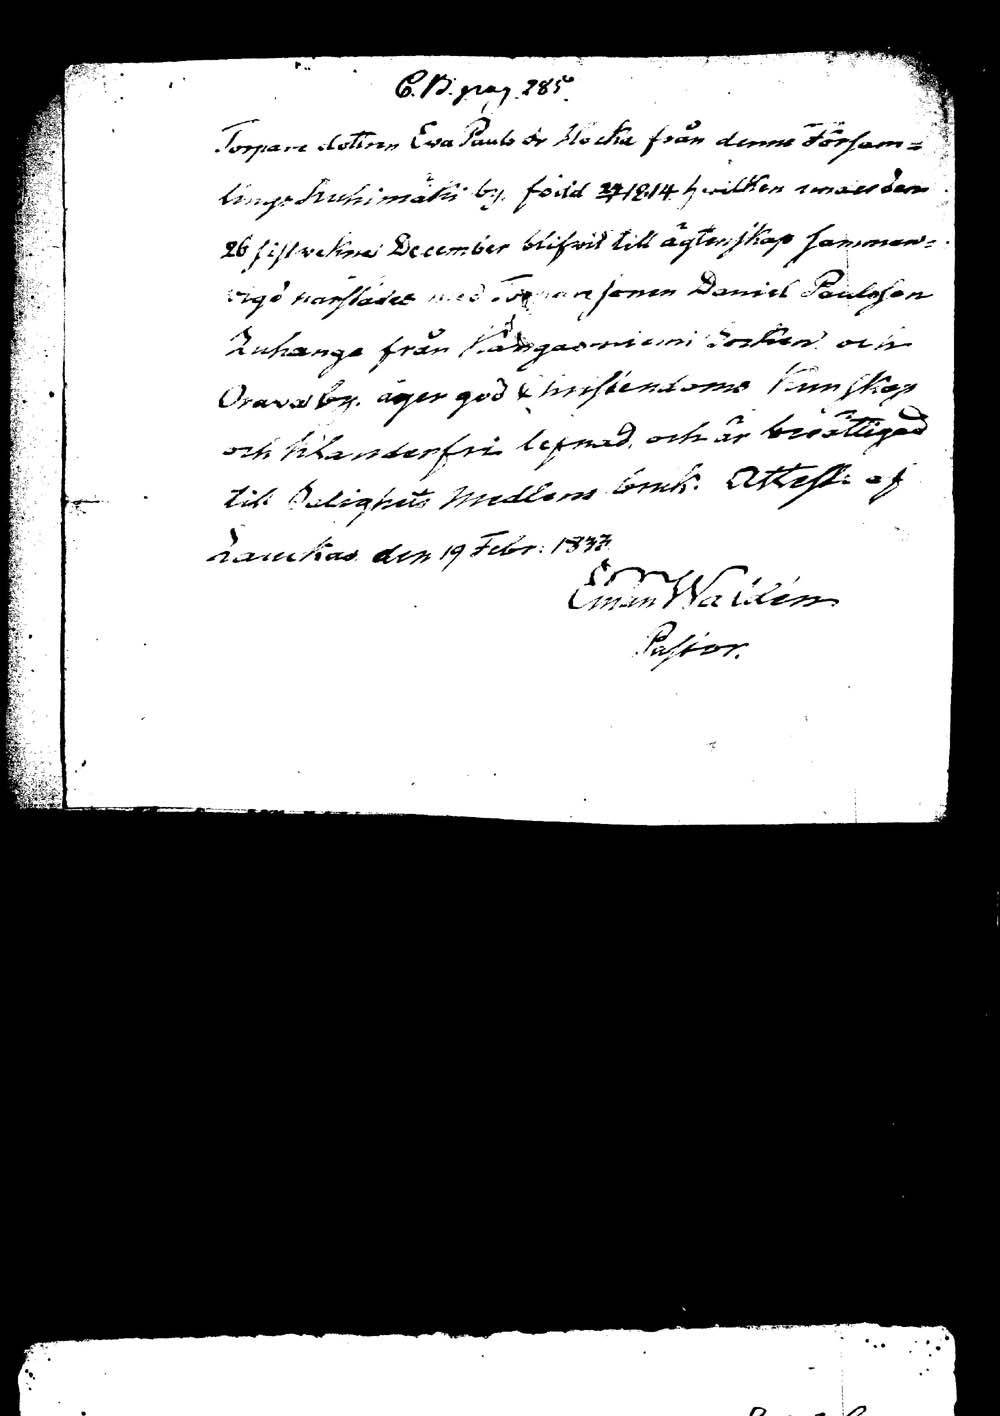 C.B. pag. 285.
Torpare dottren Eva Pauls dr Hocka från denne Försam=
lings Kuhimäki by. född 27/12.14. hvilken under den
26 sistvekne December blifvit till ägtenskap samman=
vigd härstädes med Torpare sonen Daniel Paulsson
Zuhange från Kangasniemi Socken och
Orava by. äger god Christendoms Kunskap
och klanderfri lefnad, och är berättigad
till Salighets Medlens bruk. Attest. af
den 19 Febr. 1837.
Eman Waldén
Pastor.